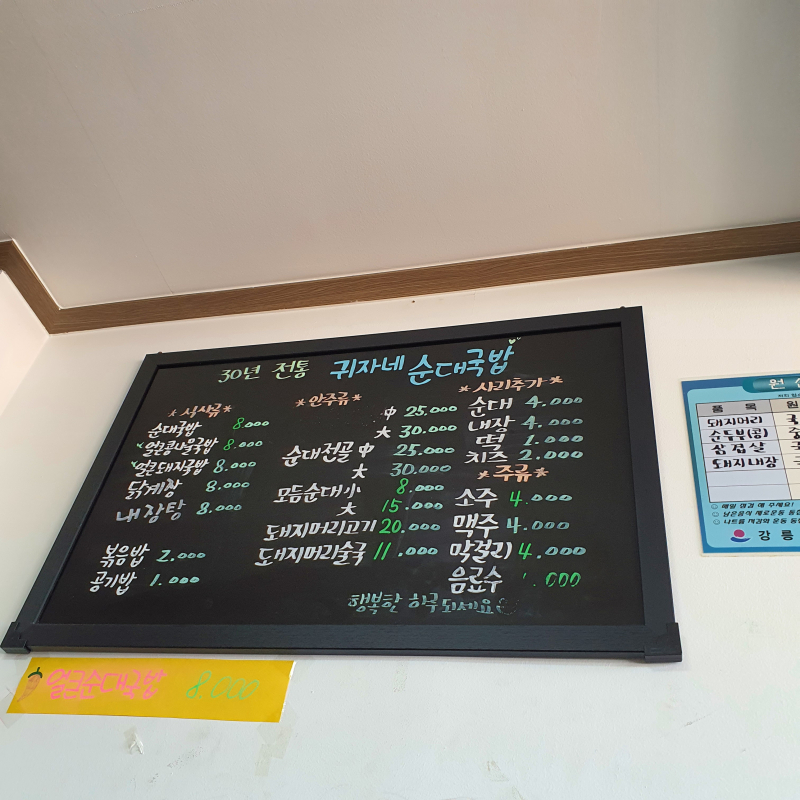 30년 전통 귀자네 순대국밥
*식사류*
순대국밥 8.000
얼큰콩나물국밥 8.000
얼큰돼지국밥 8.000
닭계장 8.000
내장탕 8.000
볶음밥 2.000
공기밥 1.000
*안주류*
中 25.000
大 30.000
순대전골 中 25.000
大 30.000
모듬순대 小 8.000
大 15.000
돼지머리고기 20.000
돼지머리술국 11.000
*사리추가*
순대 4.000
내장 4.000
떡 1.000
치즈 2.000
*주류*
소주 4.000
맥주 4.000
막걸리 4.000
음료수 .000
행복한 하루 되세요
얼큰순대국밥 8.000
원
품 목 원
돼지머리 국
순두부(콩)
삼겹살
돼지내장
강릉